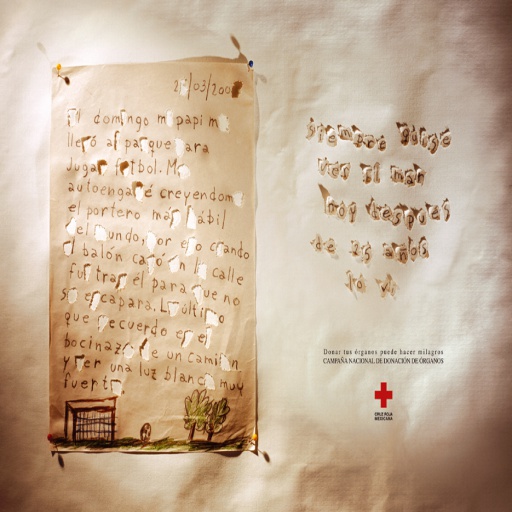 El domingo mi papi me
llevó al parque para
Jugar futbol. Me
autoengañé creyendome
el portero más hábil
del mundo, por eso cuando
el balón cayó en la calle
fui tras el para que no
se escapara. Lo último
que recuerdo es el
bocinazo de un camión
y ver una luz blanca muy
fuerte.
siempre quise
ver el mar
hoy después
de 25 años
lo vi
Donar tus órganos puede hacer milagros
CAMPAÑA NACIONAL DE DONACIÓN DE ÓRGANOS
CRUZ ROJA
MEXICANA